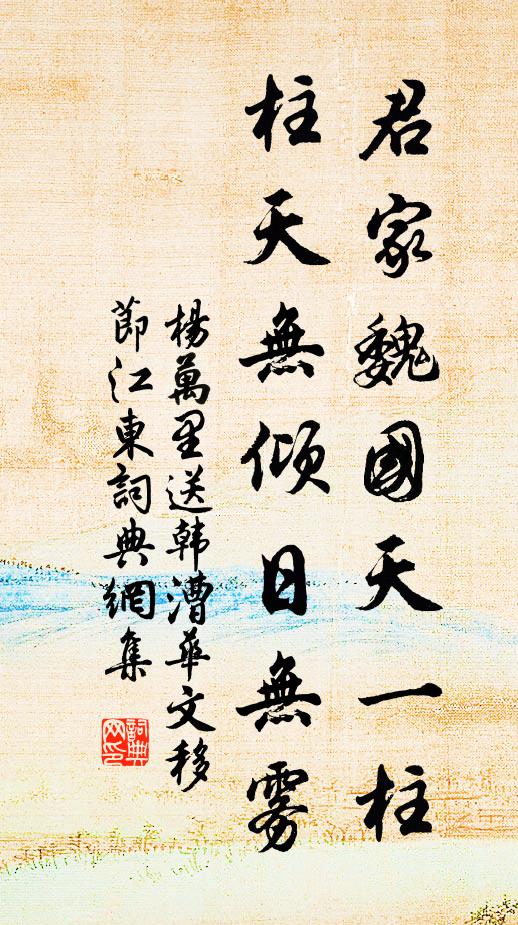 君家魏國天一柱
柱天無傾日無霧
楊萬里送韩漕華文移
節江東詞典網集
詞典
网印